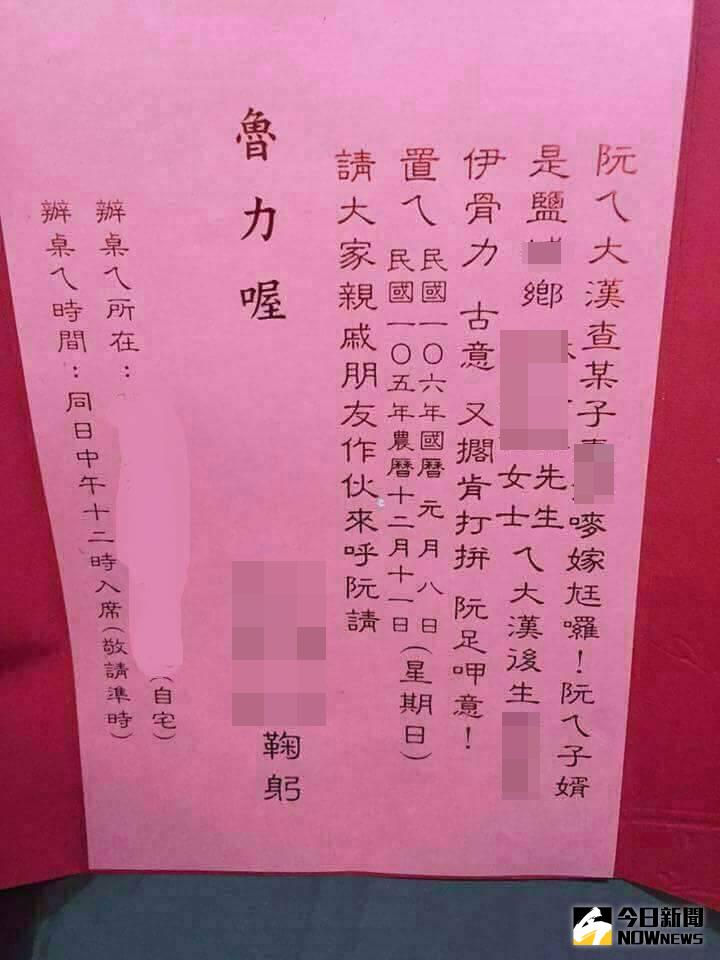 阮ㄟ大漢查某子嘜嫁尪囉！阮ㄟ子婿
是鹽鄉 先生
女士 ㄟ大漢後生
伊骨力 古意 又擱肯打拼 阮足呷意！
置ㄟ 民國一○六年國曆 元月八日
民國一○五年農曆十二月十一日 (星期日)
請大家親戚朋友作伙來呼阮請
鞠躬
魯力喔
辦桌ㄟ所在：(自宅)
辦桌ㄟ時間：同日中午十二時入席(敬請準時)
今日新聞
NOWNEWS